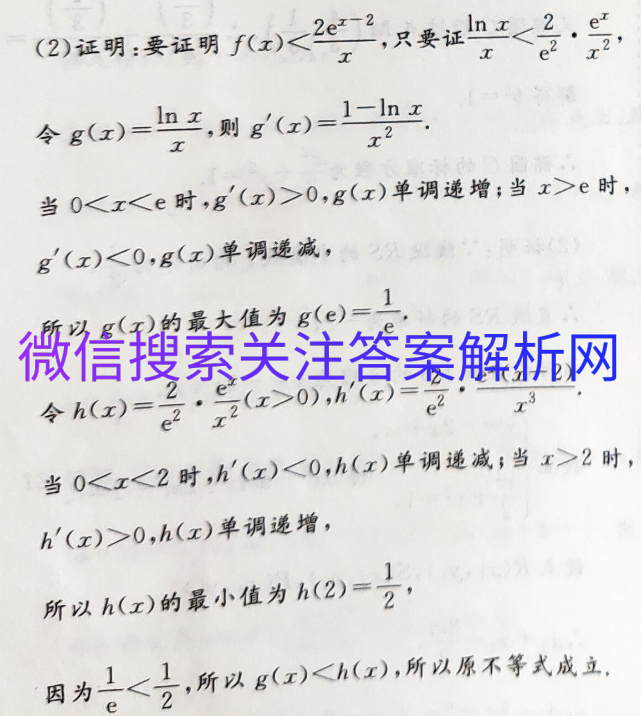 (2)证明:要证明 f(x)<2e^{x-2}/x,只要证 ln x/x<2/e²·e^x/x²,
令 g(x)=ln x/x,则 g′(x)=(1-ln x)/x².
当 0<x<e 时,g′(x)>0,g(x)单调递增;当 x>e 时,
g′(x)<0,g(x)单调递减,
所以 g(x)的最大值为 g(e)=1/e.
微信搜索关注答案解析网
令 h(x)=2/e²·e^x/x²(x>0),h′(x)=2/e²·e^x(x-2)/x³.
当 0<x<2 时,h′(x)<0,h(x)单调递减;当 x>2 时,
h′(x)>0,h(x)单调递增,
所以 h(x)的最小值为 h(2)=1/2,
因为1/e<1/2,所以 g(x)<h(x),所以原不等式成立.